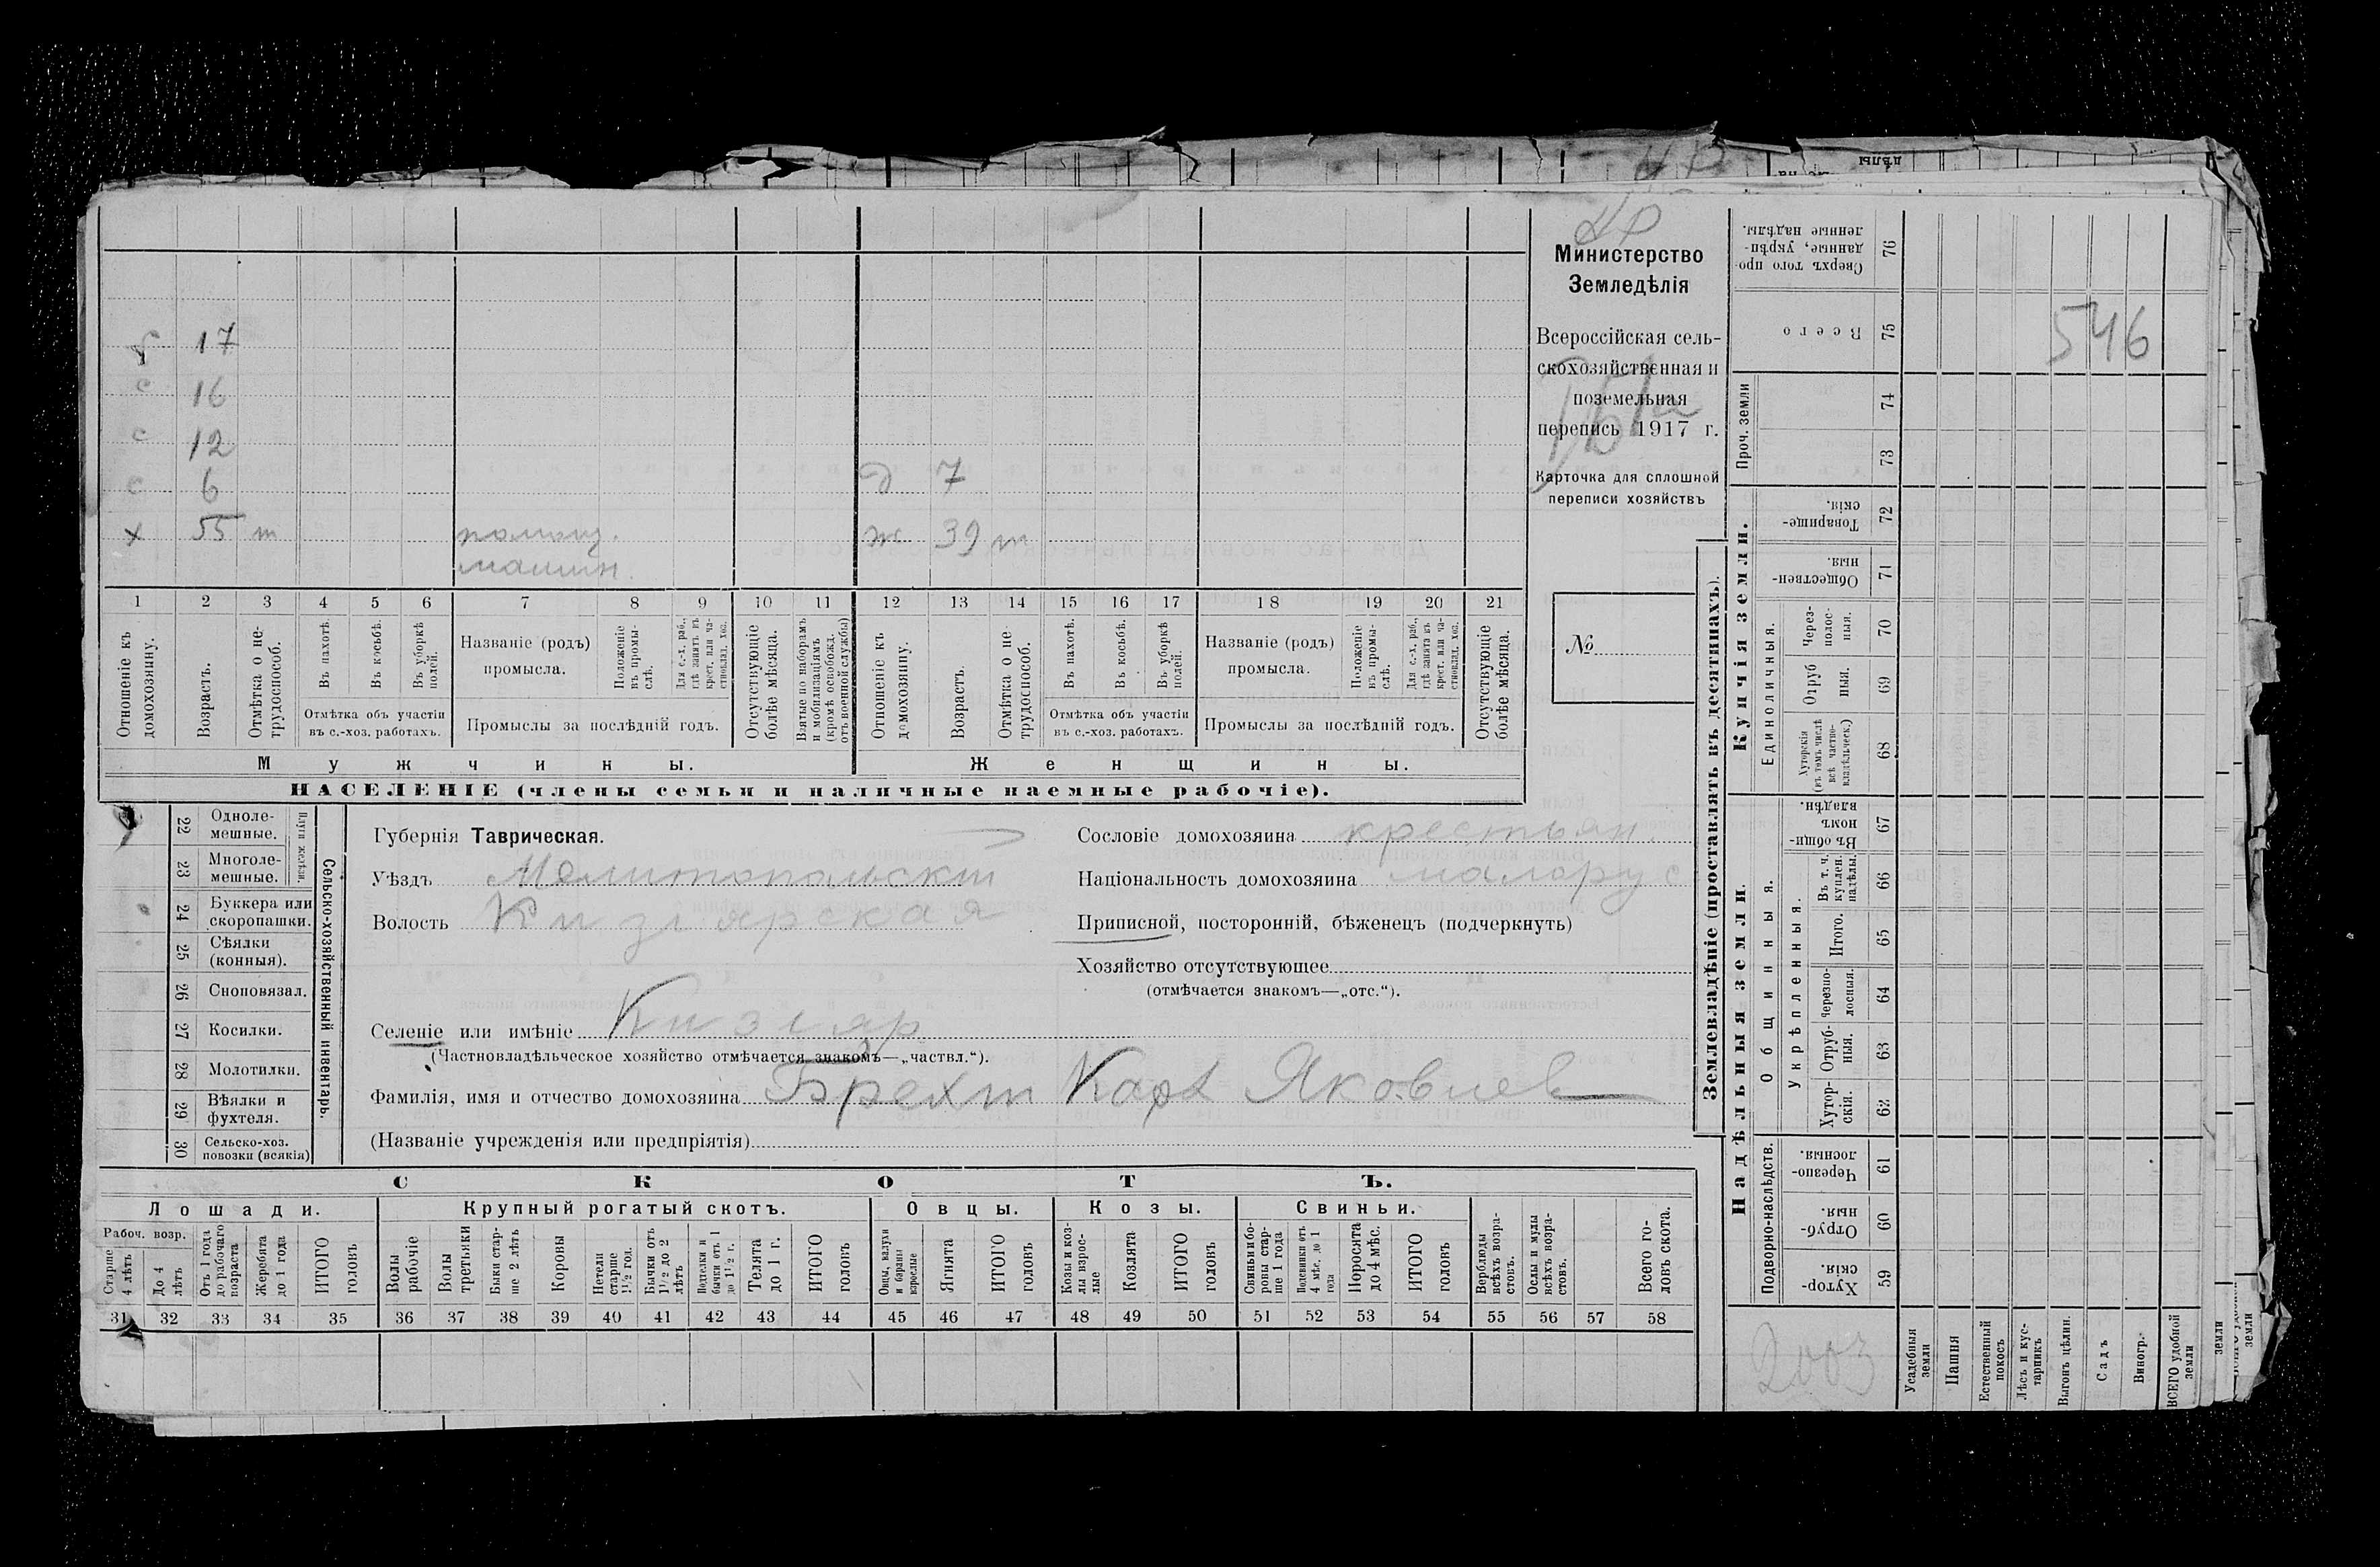 17
с 16
с 12
с 6 д 7
х 55 т помощ. ж 39 т
машин.
1 2 3 4 5 6 7 8 9 10 11 12 13 14 15 16 17 18 19 20 21
Отношеніе къ домохозяину.
Возрастъ.
Отмѣтка о нетрудоспособ.
Въ пахотѣ.
Въ косьбѣ.
Въ уборкѣ полей.
Отмѣтка объ участіи
въ с.-хоз. работахъ.
Названіе (родъ)
промысла.
Положеніе въ промыслѣ.
Для с.-х. раб., гдѣ занятъ въ крест. или частновлад. хоз.
Промыслы за послѣдній годъ.
Отсутствующіе болѣе мѣсяца.
Взятые по наборамъ и мобилизаціямъ (кромѣ освобожд. отъ военной службы)
Отношеніе къ домохозяину.
Возрастъ.
Отмѣтка о нетрудоспособ.
Въ пахотѣ.
Въ косьбѣ.
Въ уборкѣ полей.
Отмѣтка объ участіи
въ с.-хоз. работахъ.
Названіе (родъ)
промысла.
Положеніе въ промыслѣ.
Для с.-х. раб., гдѣ занятъ въ крест. или частновлад. хоз.
Промыслы за послѣдній годъ.
Отсутствующіе болѣе мѣсяца.
Мужчины. Женщины.
НАСЕЛЕНІЕ (члены семьи и наличные наемные рабочіе).
Министерство
Земледѣлія
Всероссійская сель-
скохозяйственная и
поземельная
перепись 1917 г.
Карточка для сплошной
переписи хозяйствъ
№
22 Одноле-
мешные.
23 Многоле-
мешные.
Плуги желѣзн.
24 Буккера или
скоропашки.
25 Сѣялки
(конныя).
26 Сноповязал.
27 Косилки.
28 Молотилки.
29 Вѣялки и
фухтеля.
30 Сельско-хоз.
повозки (всякія)
Сельско-хозяйственный инвентарь.
Губернія Таврическая.
Уѣздъ Мелитопольскій
Волость Кизіярская
Селеніе или имѣніе Кизіяр
(Частновладѣльческое хозяйство отмѣчается знакомъ—„частвл.“).
Фамилія, имя и отчество домохозяина Брехт Карл Яковлев
(Названіе учрежденія или предпріятія)
Сословіе домохозяина крестьян.
Національность домохозяина малорус
Приписной, посторонній, бѣженецъ (подчеркнуть)
Хозяйство отсутствующее
(отмѣчается знакомъ—„отс.“).
СКОТЪ.
Лошади. Крупный рогатый скотъ. Овцы. Козы. Свиньи.
Рабоч. возр.
Старше 4 лѣтъ
До 4 лѣтъ
Отъ 1 года до рабочаго возраста
Жеребята до 1 года
ИТОГО головъ
Волы рабочіе
Волы третьяки
Быки старше 2 лѣтъ
Коровы
Нетели старше 1½ год.
Бычки отъ 1½ до 2 лѣтъ
Подтелки и бычки отъ 1 до 1½ г.
Телята до 1 г.
ИТОГО головъ
Овцы, валухи и бараны взрослые
Ягнята
ИТОГО головъ
Козы и козлы взрослые
Козлята
ИТОГО головъ
Свиньи и боровы старше 1 года
Подсвинки отъ 4 мѣс. до 1 года
Поросята до 4 мѣс.
ИТОГО головъ
Верблюды всѣхъ возрастовъ.
Ослы и мулы всѣхъ возрастовъ.
Всего головъ скота.
31 32 33 34 35 36 37 38 39 40 41 42 43 44 45 46 47 48 49 50 51 52 53 54 55 56 57 58
Землевладѣніе (проставлять въ десятинахъ).
Купчія земли.
Надѣльныя земли.
Сверхъ того проданные, укрѣпленные надѣлы. 76
Всего 75
546
Проч. земли 74
73
Товарищескія. 72
Общественныя. 71
Единоличныя.
Черезполосныя. 70
Отрубныя. 69
Хуторскія (въ томъ числѣ всѣ частновладѣльческ.) 68
Общинныя.
Въ общинномъ владѣн. 67
Укрѣпленныя.
Въ т. ч. куплен. надѣлы. 66
Итого. 65
Черезполосныя. 64
Отрубныя. 63
Хуторскія. 62
Подворно-наслѣдств.
Черезполосныя. 61
Отрубныя. 60
Хуторскія. 59
2003
Усадебныя земли
Пашня
Естественный покосъ
Лѣсъ и кустарникъ
Выгонъ цѣлин.
Садъ
Виногр.
ВСЕГО удобной земли
земли
земли